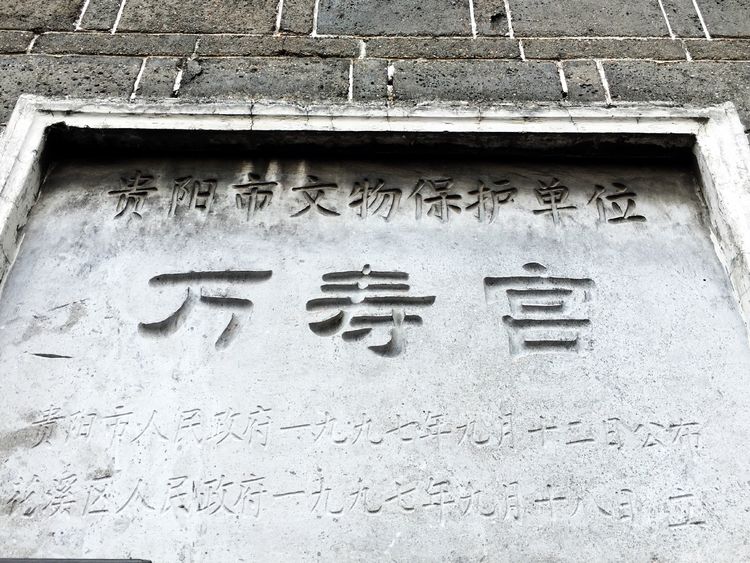 贵阳市文物保护单位
万寿宫
贵阳市人民政府一九九七年九月十二日公布
花溪区人民政府一九九七年九月十八日立